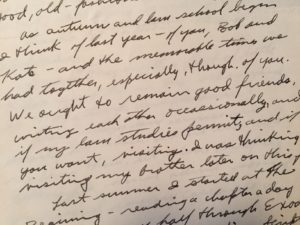 ood, old-
as autumn and law school begin
I think of last year - of you, Bob and
Kate - and the memorable times we
had together, especially, though, of you.
We ought to remain good friends,
writing each other occasionally, and
if my law studies permit, and if
you want, visiting. I was thinking
visiting my brother later on this
Last summer I started at the
- reading a chapter a day
half through Exod